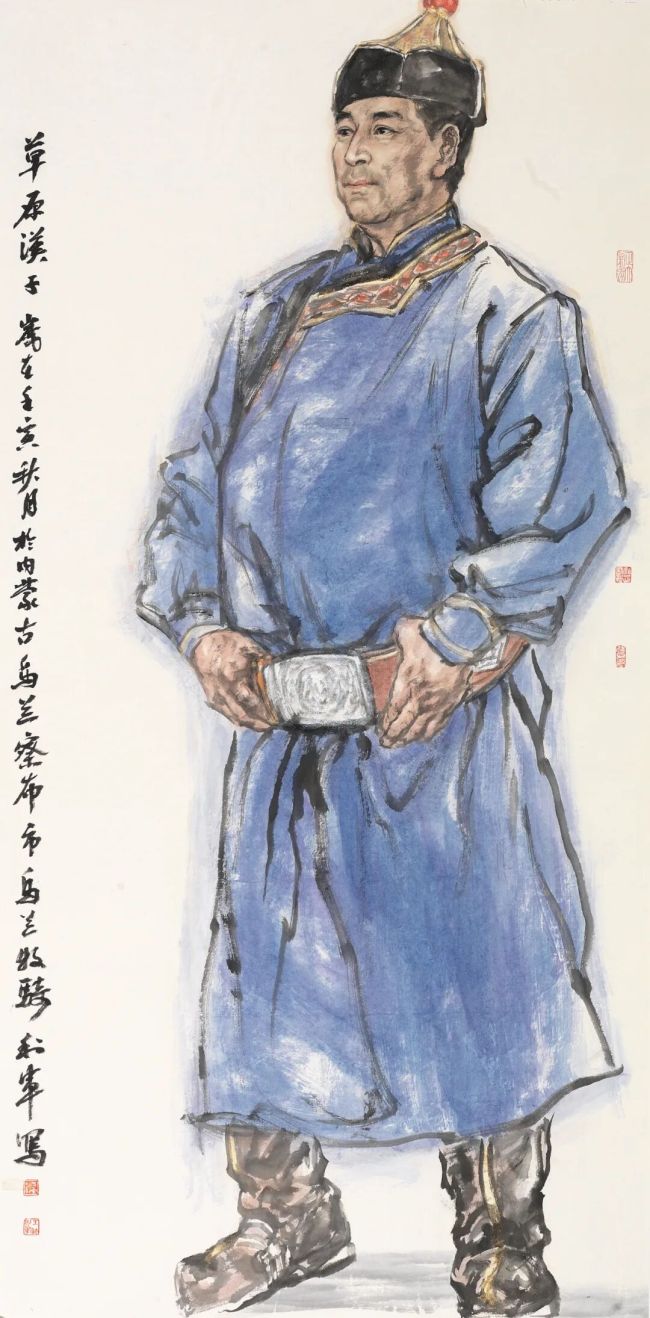 草原漢子 歲在壬寅秋月於内蒙古烏兰察布市烏兰牧騎 利軍寫